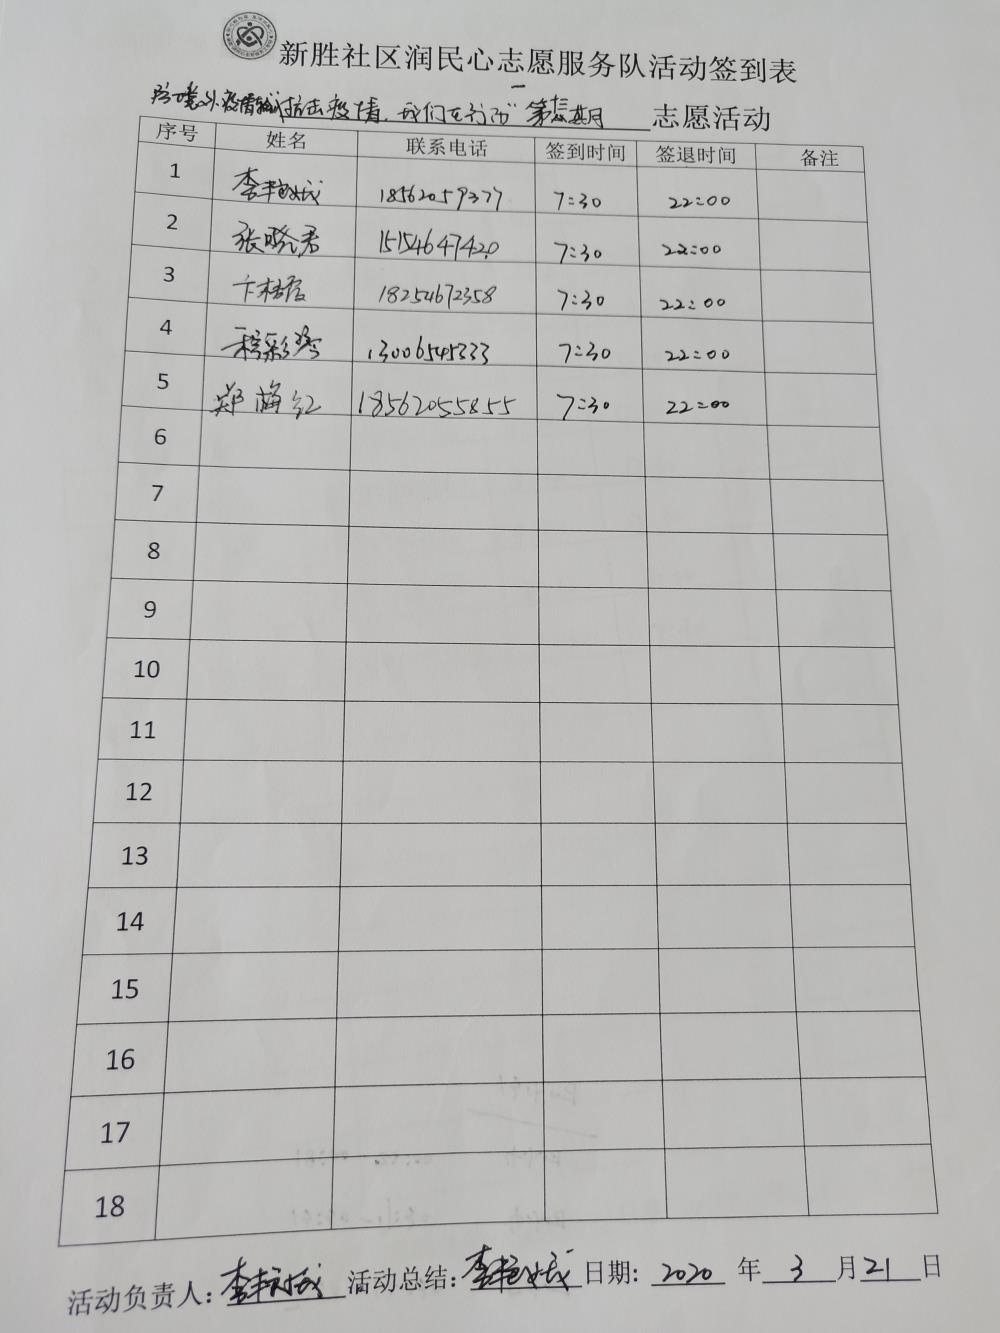 新胜社区润民心志愿服务队活动签到表
抗击疫情,我们在行动 第 期 志愿活动
序号 姓名 联系电话 签到时间 签退时间 备注
1 李艳娥 18562059377 7:30 22:00
2 张晓君 15154647420 7:30 22:00
3 18254672358 7:30 22:00
4 程彩 13006545333 7:30 22:00
5 郑梅红 18562055855 7:30 22:00
6
7
8
9
10
11
12
13
14
15
16
17
18
活动负责人: 李艳娥 活动总结: 李艳娥 日期: 2020 年 3 月 21 日